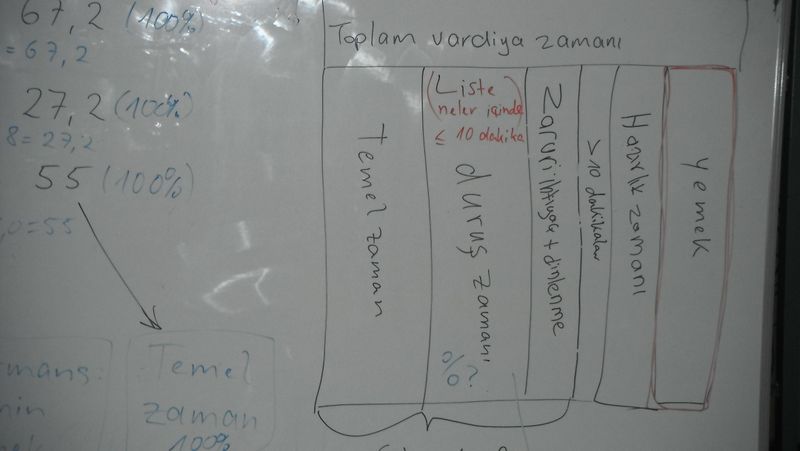 67,2 (100%)
= 67,2
27,2 (100%)
8 = 27,2
55 (100%)
,0 = 55
Temel
zaman
100%
Toplam vardiya zamanı
Temel zaman
(Liste
neler içinde)
≤ 10 dakika
duruş zamanı
%?
Zaruri ihtiyaç + dinlenme
> 10 dakikalar
Hazırlık zamanı
Yemek